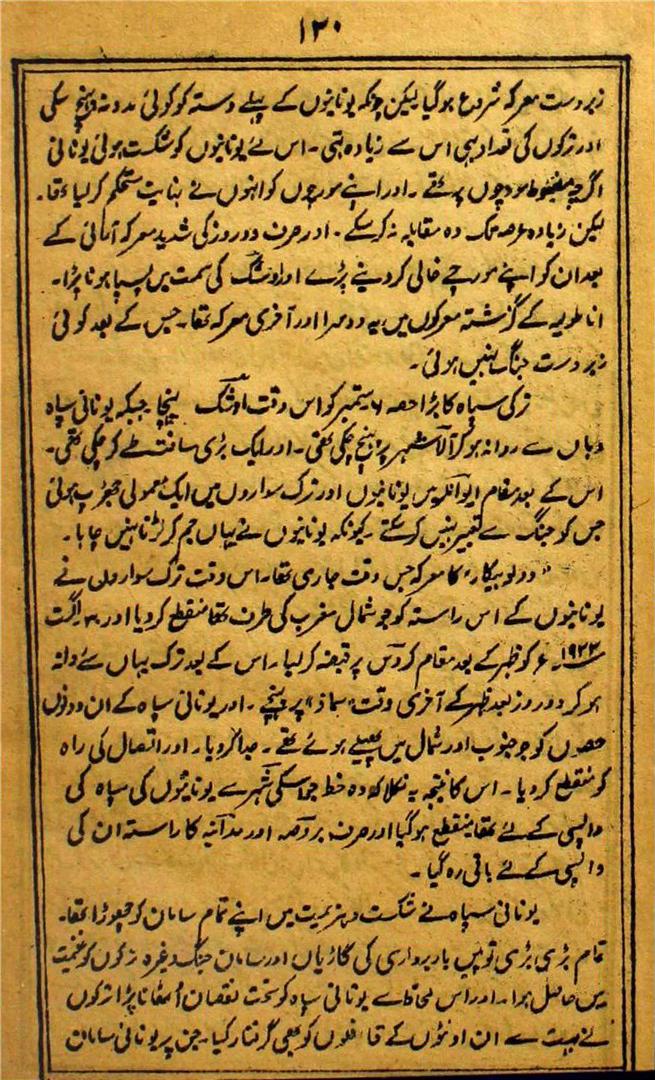 ۱۲۰
زبردست معرکہ شروع ہوگیا لیکن چونکہ یونانیوں کے پہلے دستہ کو کوئی مدد نہ پہنچ سکی
اور ترکوں کی تعداد بھی اس سے زیادہ تھی۔ اس لئے یونانیوں کو شکست ہوئی یونانی
اگرچہ مضبوط مورچوں پر تھے۔ اور اپنے مورچوں کو انہوں نے نہایت مستحکم کرلیا تھا۔
لیکن زیادہ عرصہ تک وہ مقابلہ نہ کرسکے۔ اور صرف دو روز کی شدید معرکہ آرائی کے
بعد ان کو اپنے مورچے خالی کردینے پڑے اور اوشک کی سمت میں پسپا ہونا پڑا۔
اناطولیہ کے گزشتہ معرکوں میں یہ دوسرا اور آخری معرکہ تھا۔ جس کے بعد کوئی
زبردست جنگ نہیں ہوئی۔
ترکی سپاہ کا بڑا حصہ ۶ ستمبر کو اس وقت اوشک پہنچا جبکہ یونانی سپاہ
وہاں سے روانہ ہوکر آلاشہر پر پہنچ چکی تھی۔ اور ایک بڑی مسافت طے کرچکی تھی۔
اس کے بعد مقام میں یونانیوں اور ترک سواروں میں ایک معمولی جھڑپ ہوئی
جس کو جنگ سے تعبیر نہیں کرسکتے۔ کیونکہ یونانیوں نے یہاں جم کر لڑنا نہیں چاہا۔
"دولو بیکار" کا معرکہ جس وقت جاری تھا۔ اس وقت ترک سواروں نے
یونانیوں کے اس راستہ کو جو شمال مغرب کی طرف تھا منقطع کردیا اور ۳۰ اگست
۱۹۲۲ء کو ظہر کے بعد مقام کردس پر قبضہ کرلیا۔ اس کے بعد ترک یہاں سے روانہ
ہوکر دو روز بعد ظہر کے آخری وقت "سماؤ" پر پہنچے۔ اور یونانی سپاہ کے ان دونوں
حصوں کو جو جنوب اور شمال میں پھیلے ہوئے تھے۔ جدا کردیا۔ اور اتصال کی راہ
کو منقطع کردیا۔ اس کا نتیجہ یہ نکلا کہ وہ خط جو اسکی شہر سے یونانیوں کی سپاہ کی
واپسی کے لئے تھا منقطع ہوگیا اور صرف بروصہ اور مدانیہ کا راستہ ان کی
واپسی کے لئے باقی رہ گیا۔
یونانی سپاہ نے شکست و ہزیمیت میں اپنے تمام سامان کو چھوڑا تھا۔
تمام بڑی بڑی توپیں باربرداری کی گاڑیاں اور سامان جنگ وغیرہ ترکوں کو غنیمت
میں حاصل ہوا۔ اور اس لحاظ سے یونانی سپاہ کو سخت نقصان اُٹھانا پڑا ترکوں
نے بہت سے ان اونٹوں کے قافلوں کو بھی گرفتار کیا۔ جن پر یونانی سامان